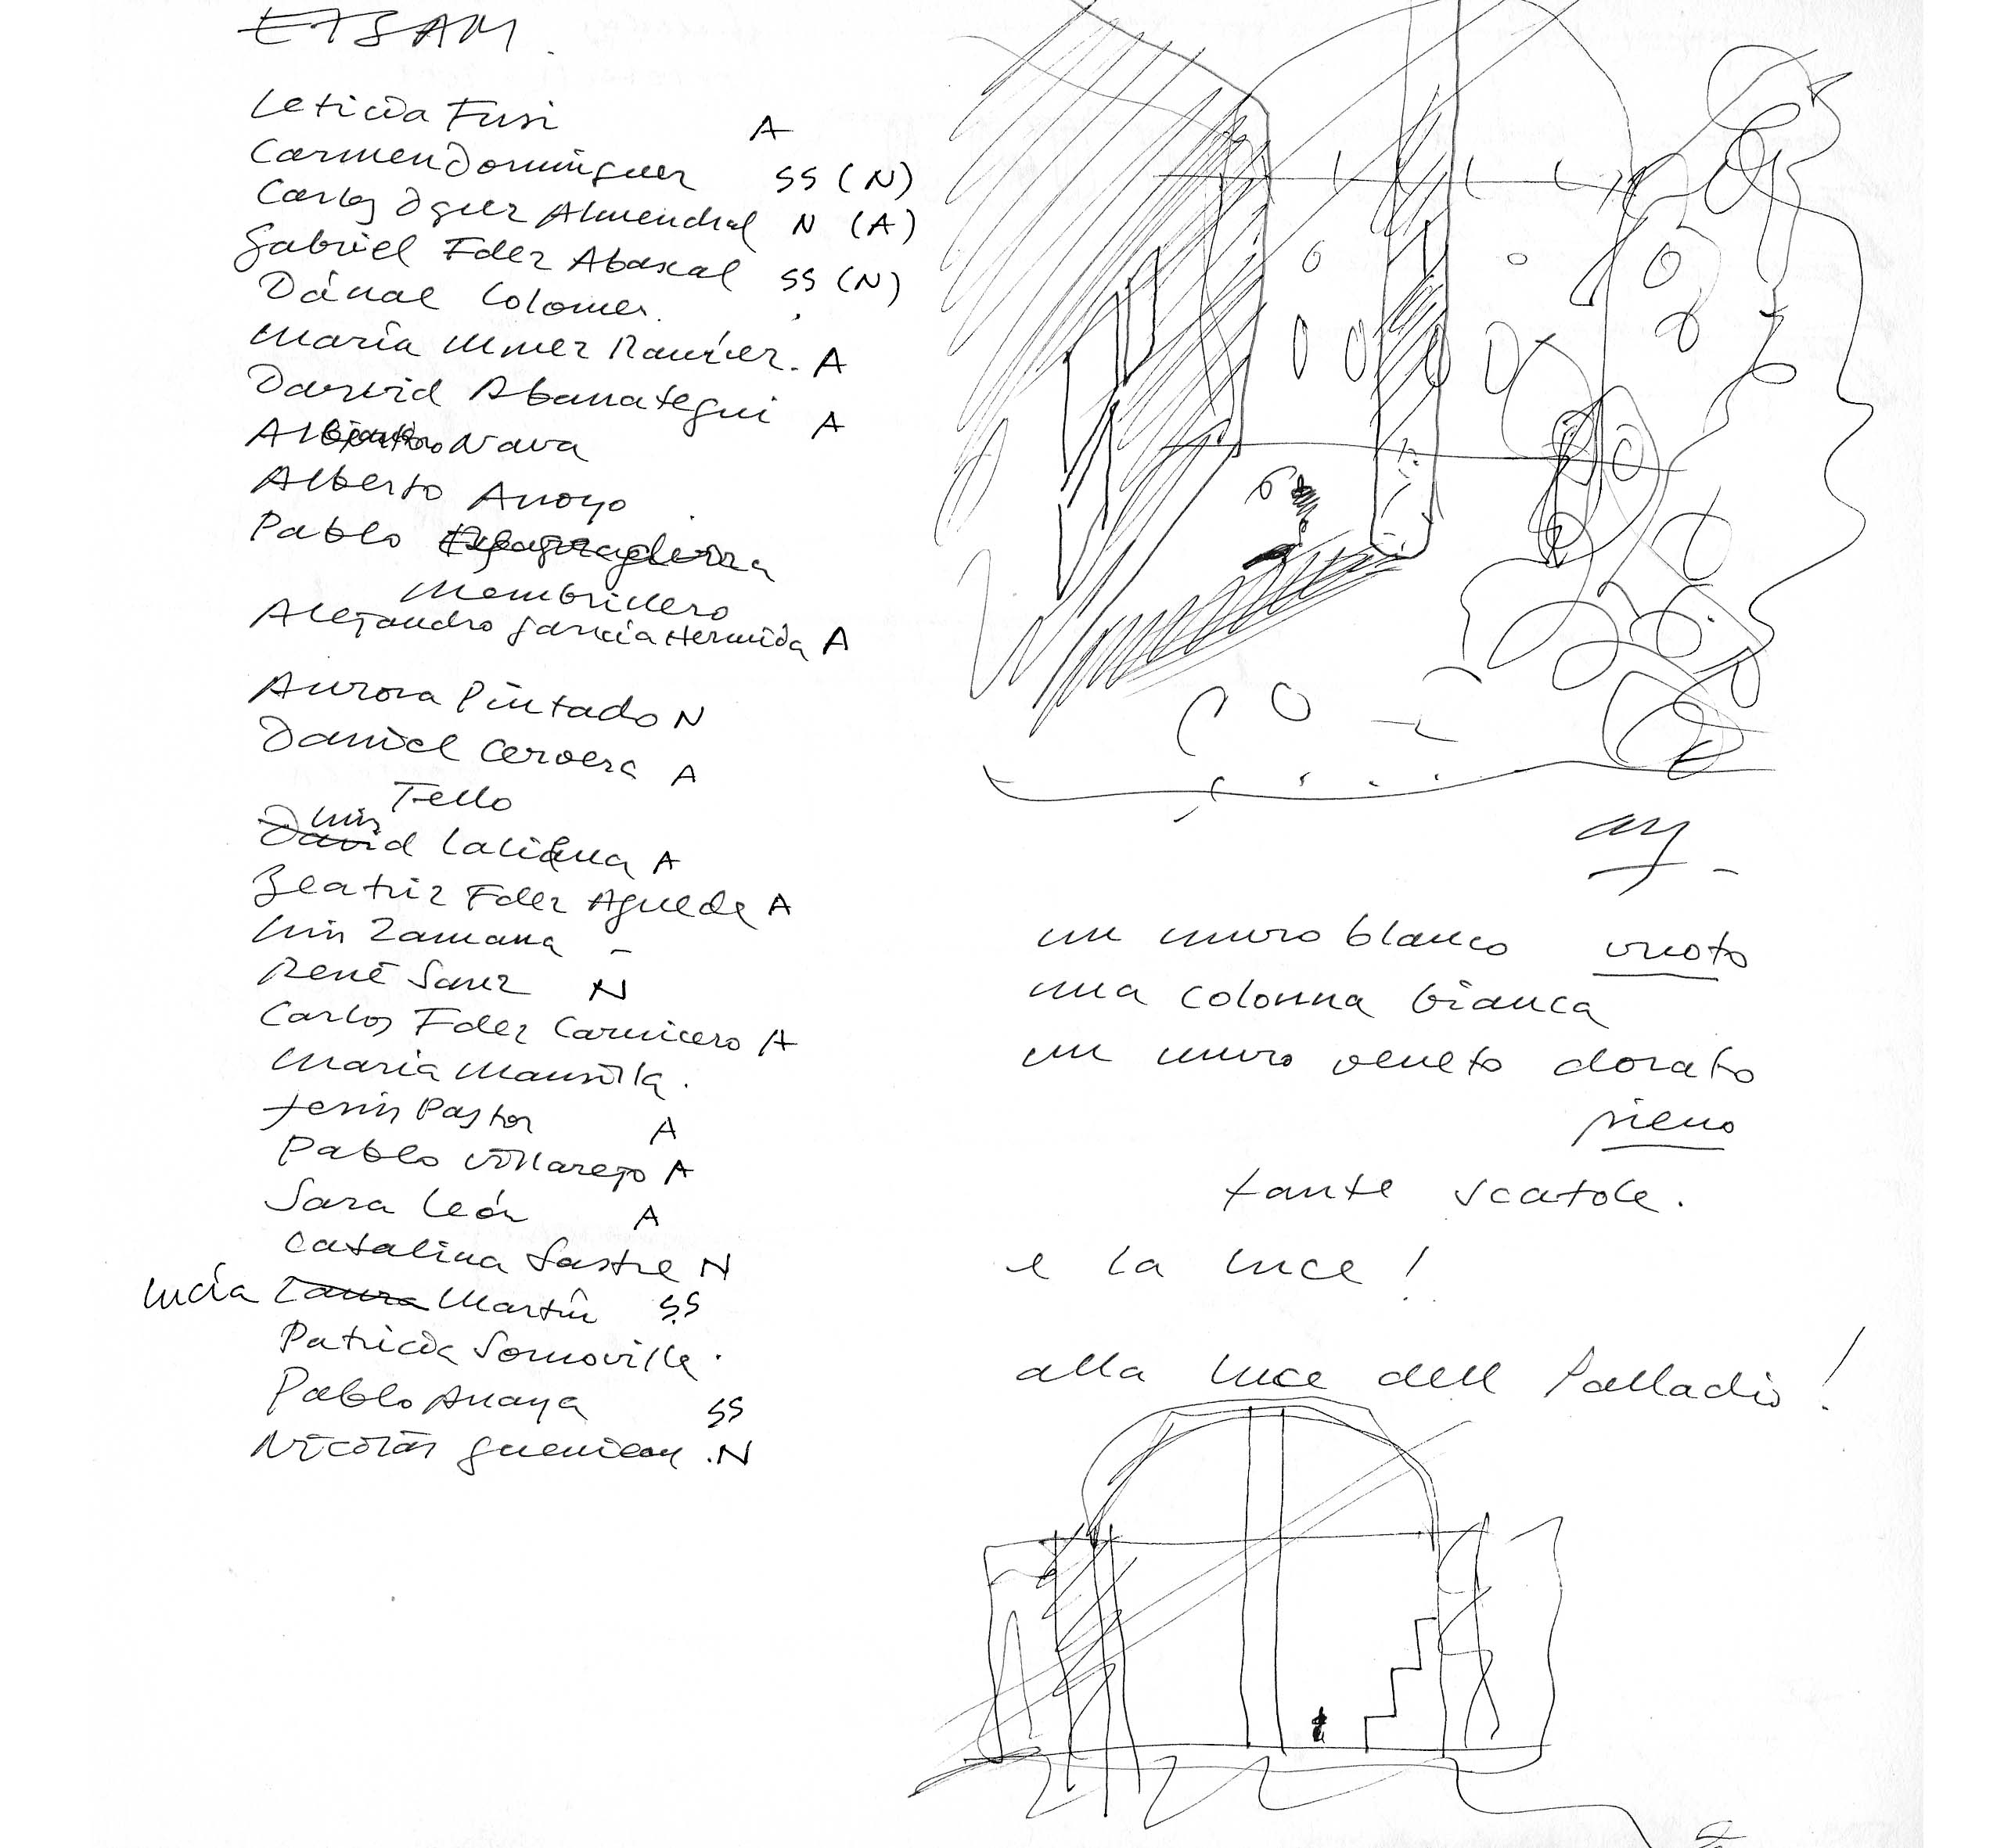 ETSAM.
Leticia Fusi A
Carmen Domínguez SS (N)
Carlos Dguez Almendral N (A)
Gabriel Fdez Abascal SS (N)
Dánae Colomer
María Mnez Ramírez. A
David Abanategui A
Nava
Alberto Arroyo
Pablo
Membrillero
Alejandro García Hermida A
Aurora Pintado N
Daniel Cervera A
Tello
Luis
David Laliena A
Beatriz Fdez Agueda A
Luis Zamana -
René Sanz N
Carlos Fdez Carnicero A
María Mansilla.
Jesús Pastor A
Pablo Villarejo A
Sara León A
Catalina Sastre N
Lucía Laura Martín SS
Patricia Somovilla.
Pablo Anaya SS
Nicolás .N
un muro blanco vuoto
una colonna bianca
un muro veneto dorato
pieno
tante scatole.
e la luce!
alla luce dell Palladio!